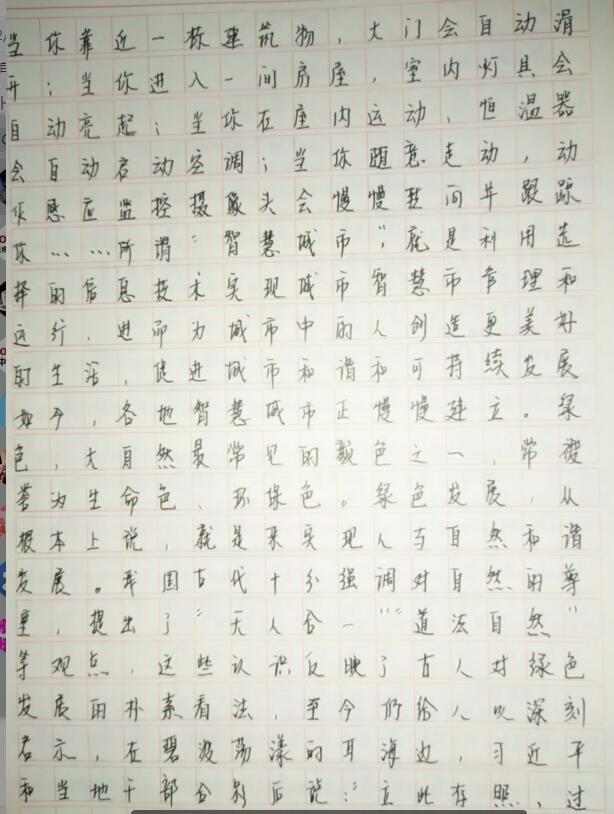 当你靠近一栋建筑物，大门会自动滑
开；当你进入一间房屋，室内灯具会
自动亮起；当你在座内运动，恒温器
会自动启动空调；当你随意走动，动
作感应监控摄像头会慢慢转间并跟踪
你……所谓“智慧城市”，就是利用选
择的信息技术实现城市智慧市管理和
运行，进而为城市中的人创造更美好
的生活，促进城市和谐和可持续发展
如今，各地智慧城市正慢慢建立。绿
色，大自然最常见的颜色之一，常被
誉为生命色、环保色。绿色发展，从
根本上说，就是来实现人与自然和谐
发展。我国古代十分强调对自然的尊
重，提出了“天人合一”“道法自然”
等观点，这些认识反映了古人对绿色
发展的朴素看法，至今仍给人以深刻
启示，在碧波荡漾的耳海边，习近平
和当地干部合影后说：“立此存照，过